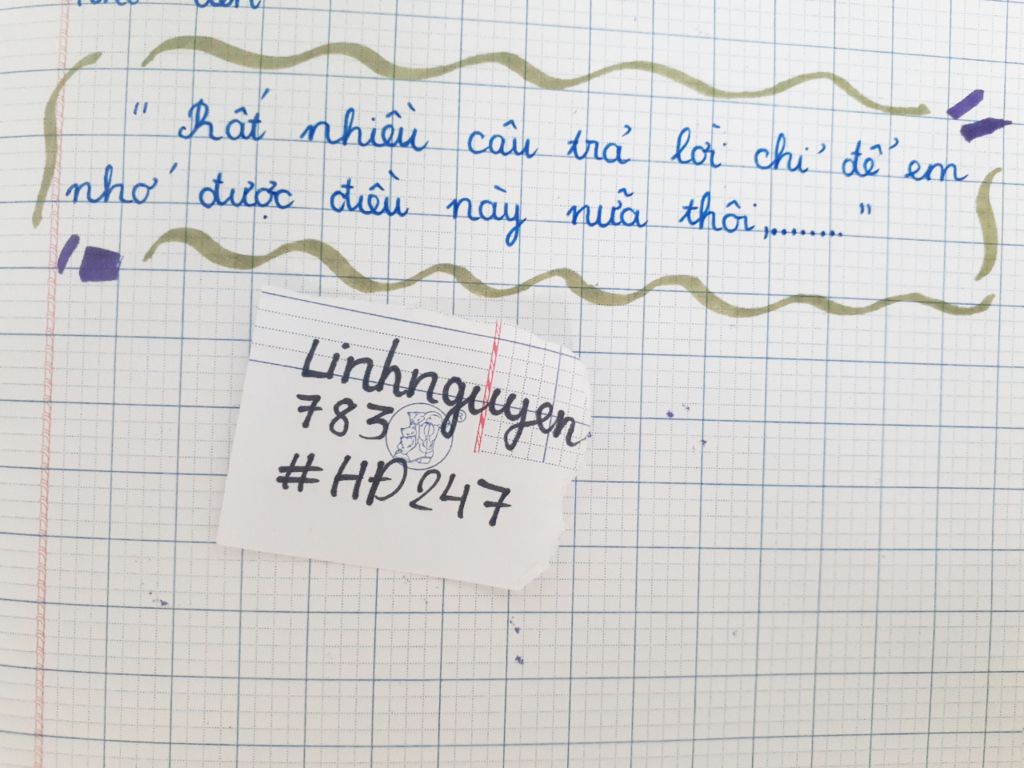 " Rất nhiều câu trả lời chỉ để em
nhớ được điều này nữa thôi,......... "
Linhnguyen
783
#HĐ247